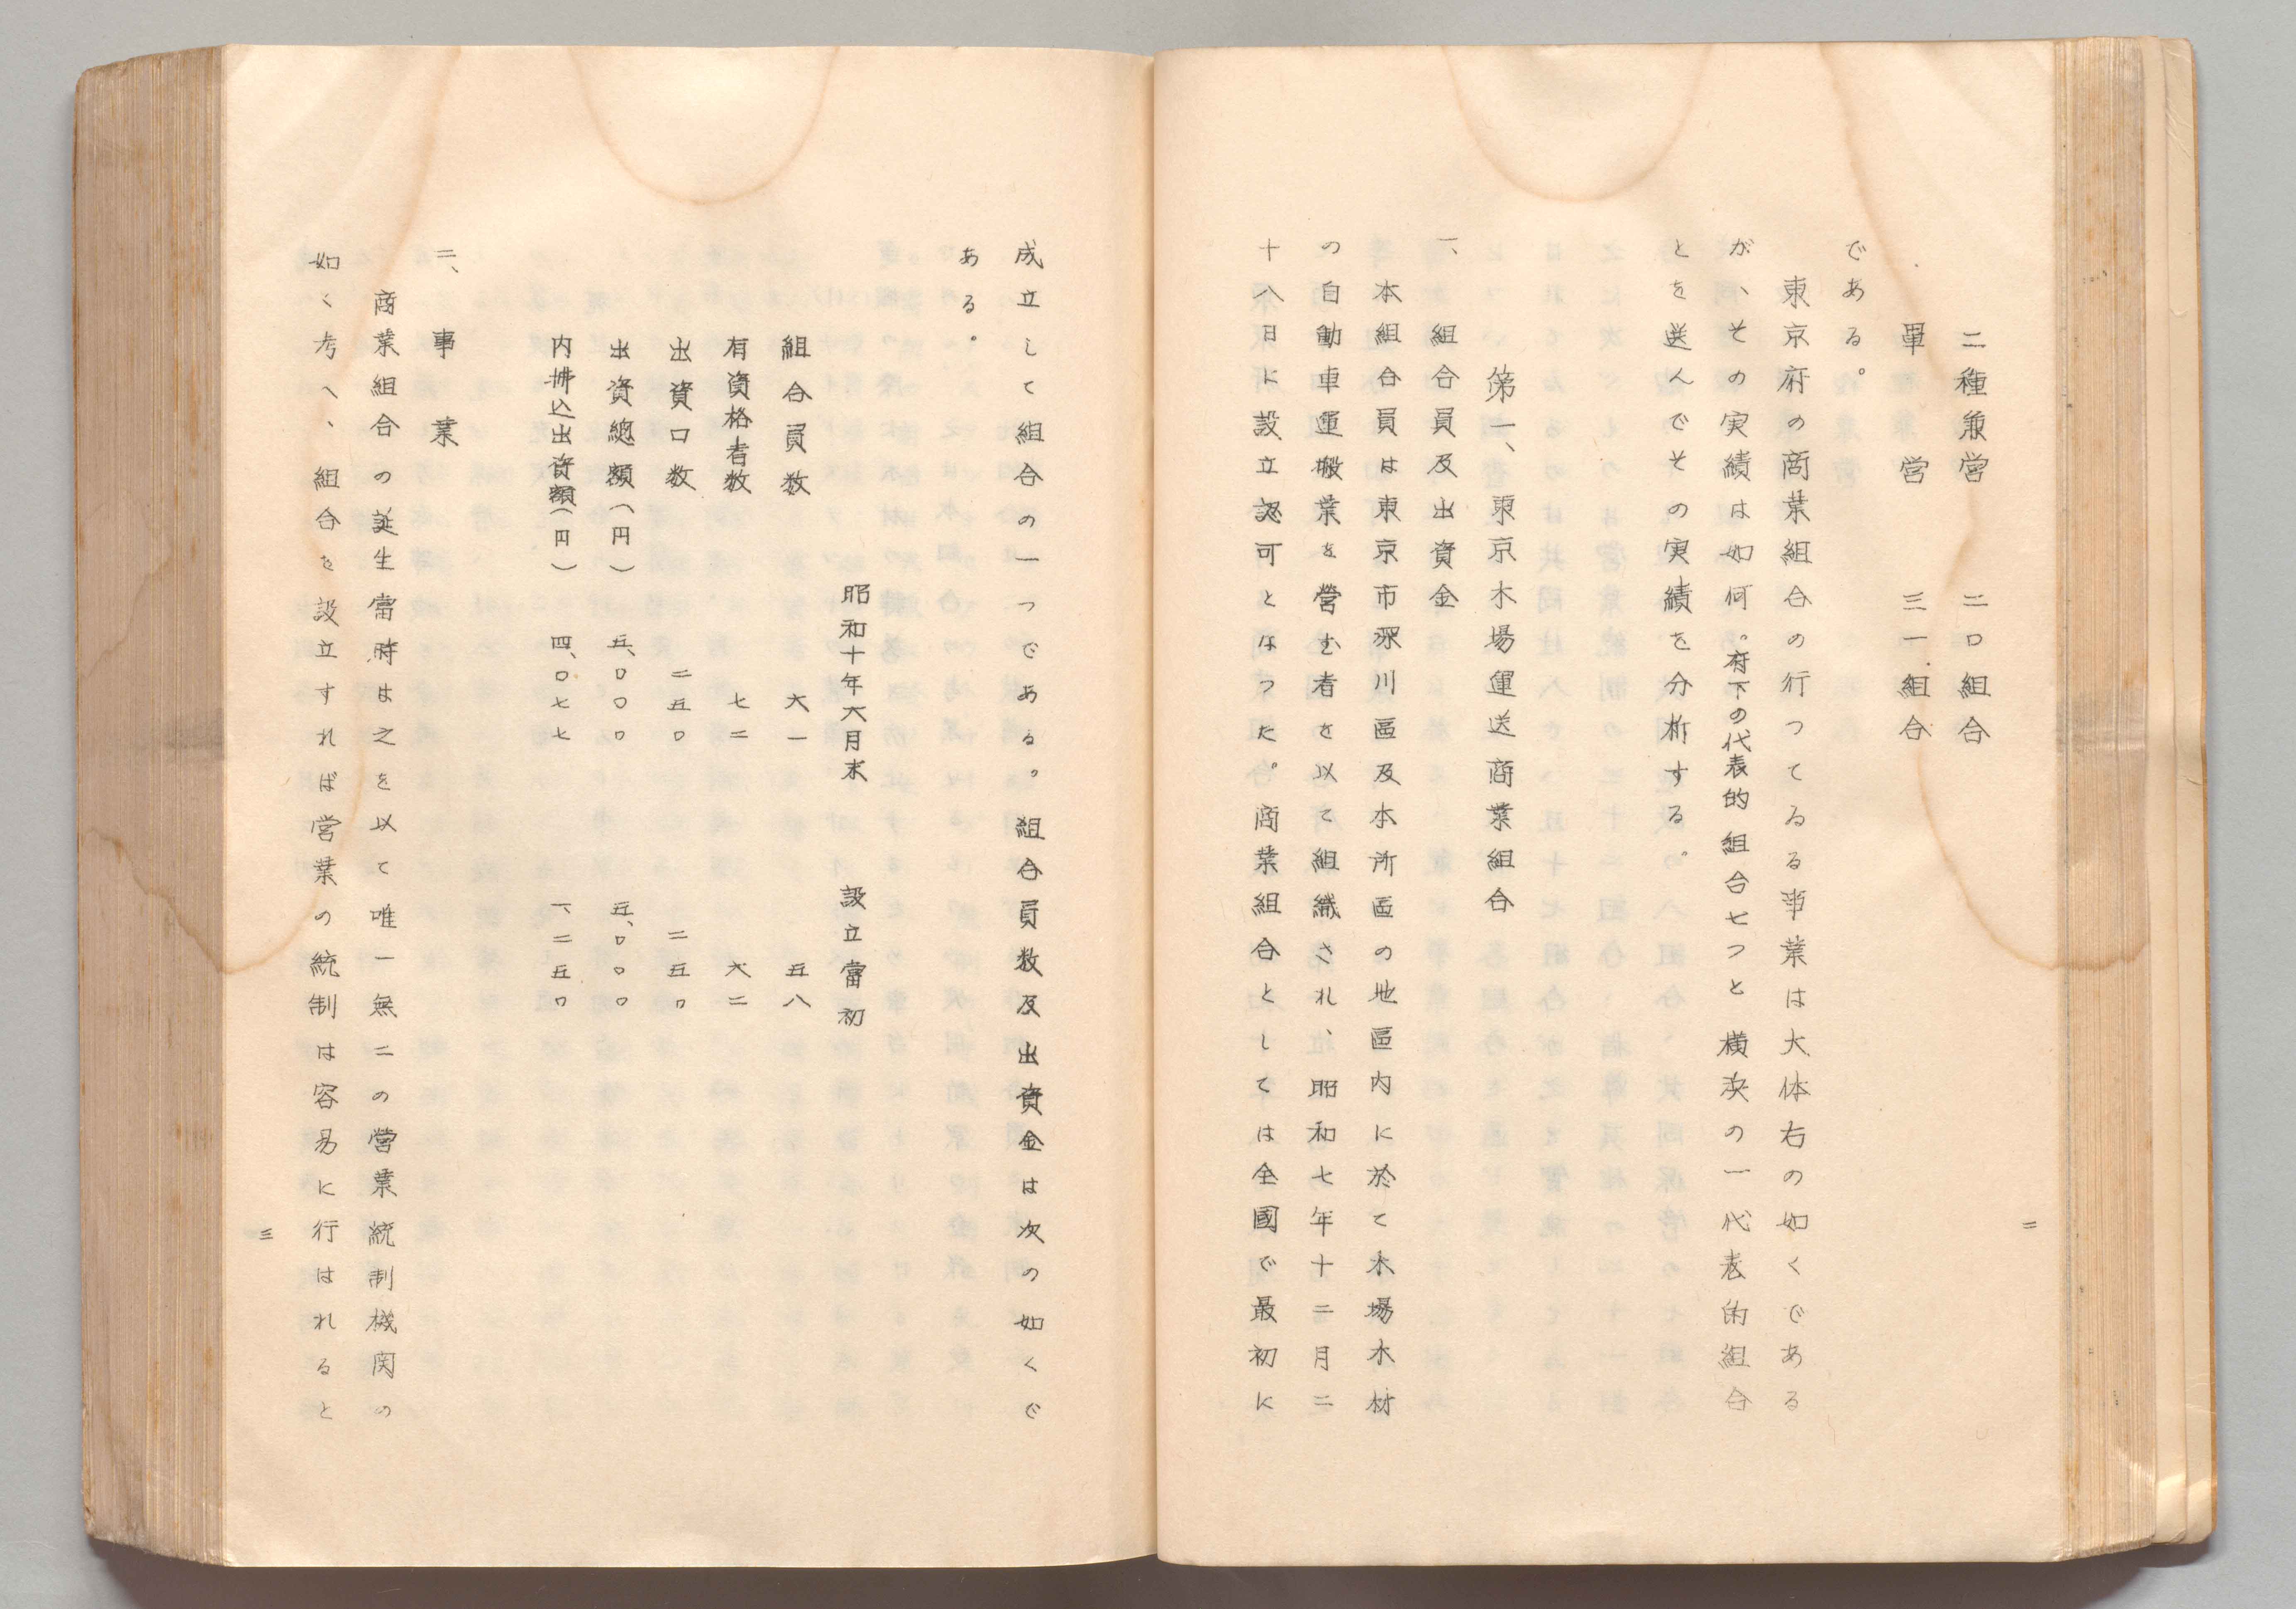 二種兼営　二〇組合
単　営　三一組合
である。
東京府の商業組合の行つてゐる事業は大体右の如くである
が、その実績は如何。府下の代表的組合七つと横浜の一代表的組合
とを選んでその実績を分析する。
第一、東京木場運送商業組合
一、組合員及出資金
本組合員は東京市深川區及本所區の地區内に於て木場木材
の自動車運搬業を營む者を以て組織され、昭和七年十二月二
十八日に設立認可となつた。商業組合としては全國で最初に
二
成立して組合の一つである。組合員数及出資金は次の如くで
ある。
昭和十年六月末　設立當初
組合員数　六一　五八
有資格者数　七二　六二
出資口数　二五〇　二五〇
出資總額（円）　五、〇〇〇　五、〇〇〇
内拂込出資額（円）　四、〇七七　一、二五〇
二、事業
商業組合の誕生當時は之を以て唯一無二の營業統制機関の
如く考へ、組合を設立すれば営業の統制は容易に行はれると
三